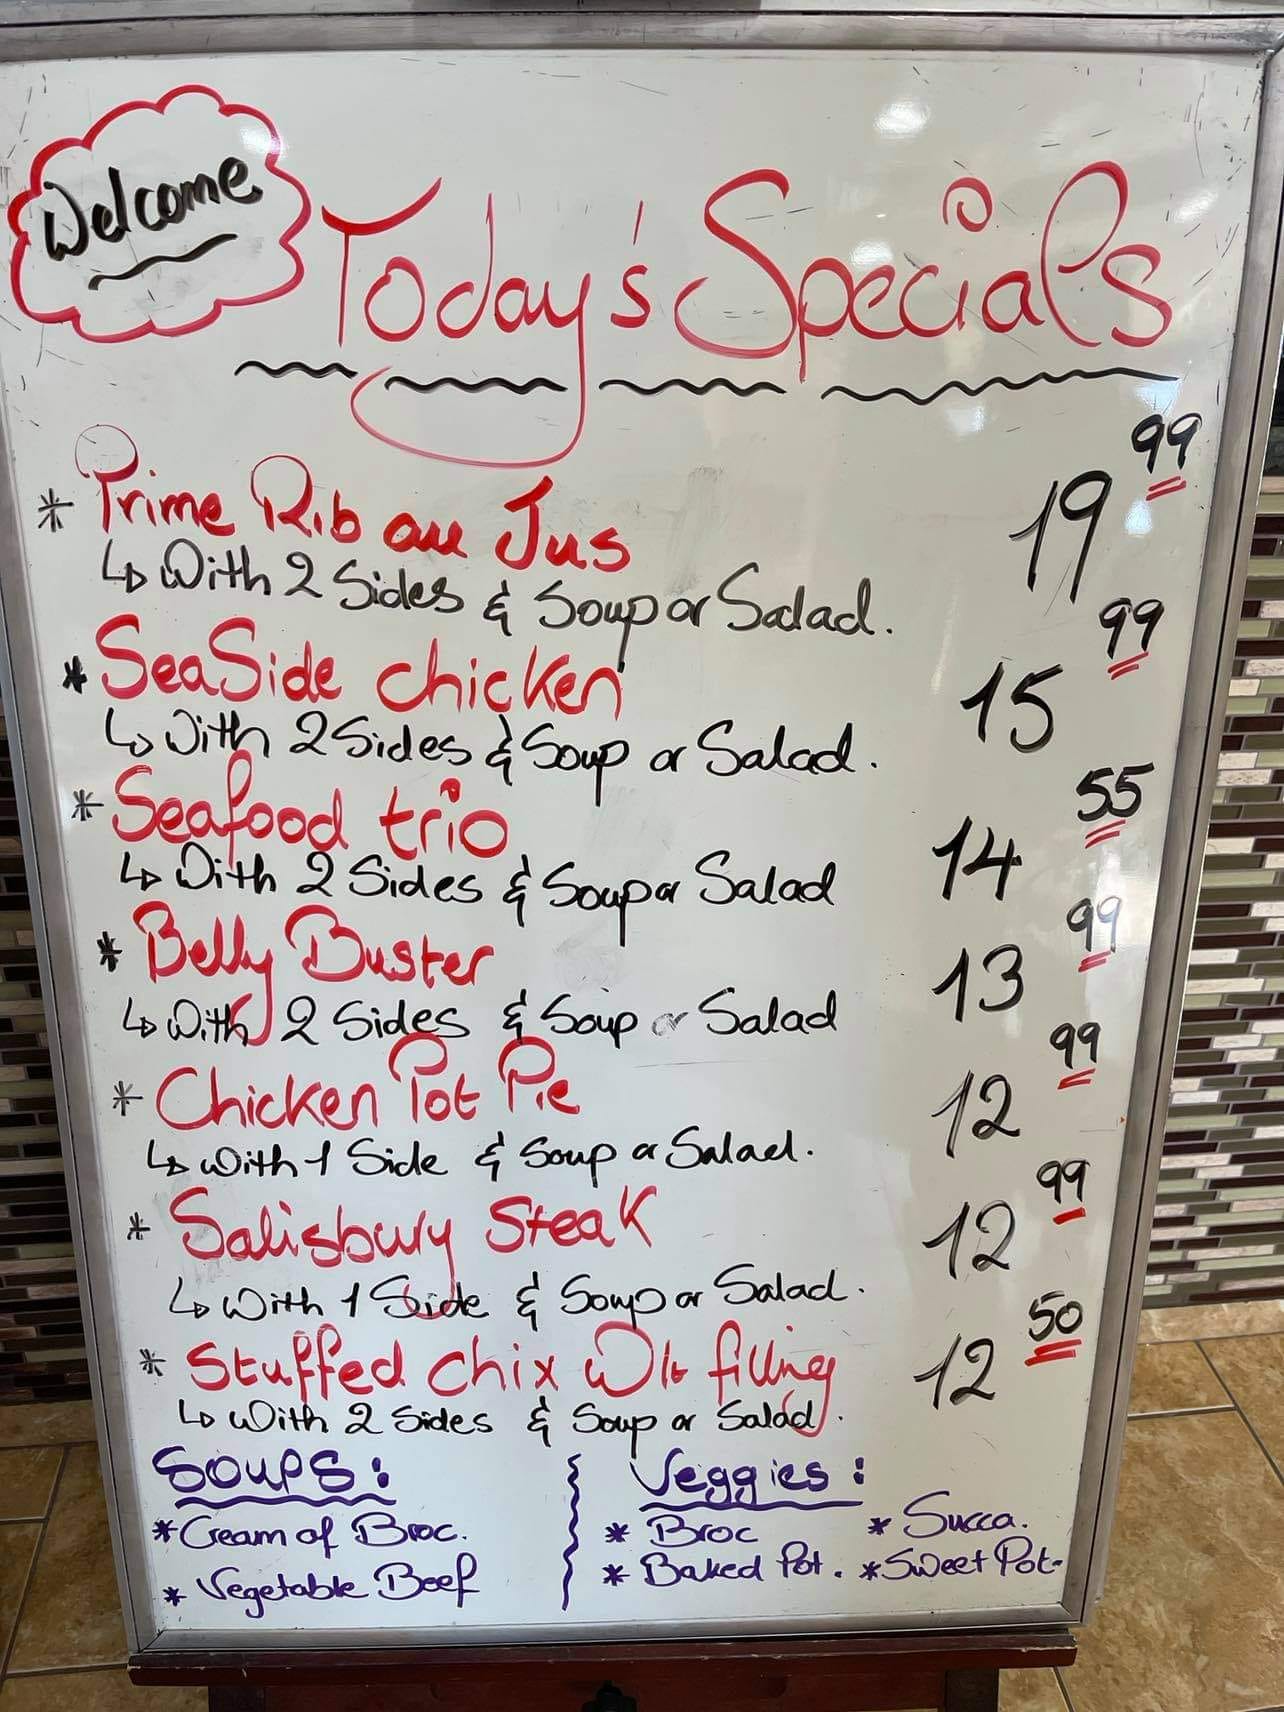 Welcome
Today's Specials
* Prime Rib au Jus 19 99
↳ With 2 Sides & Soup or Salad.
* SeaSide chicken 15 99
↳ With 2 Sides & Soup or Salad.
* Seafood trio 14 55
↳ With 2 Sides & Soup or Salad
* Belly Buster 13 99
↳ With 2 Sides & Soup or Salad
* Chicken Pot Pie 12 99
↳ With 1 Side & Soup or Salad.
* Salisbury Steak 12 99
↳ With 1 Side & Soup or Salad.
* Stuffed chix W/ filling 12 50
↳ With 2 Sides & Soup or Salad.
Soups:
* Cream of Broc.
* Vegetable Beef
Veggies:
* Broc * Succa.
* Baked Pot. * Sweet Pot.